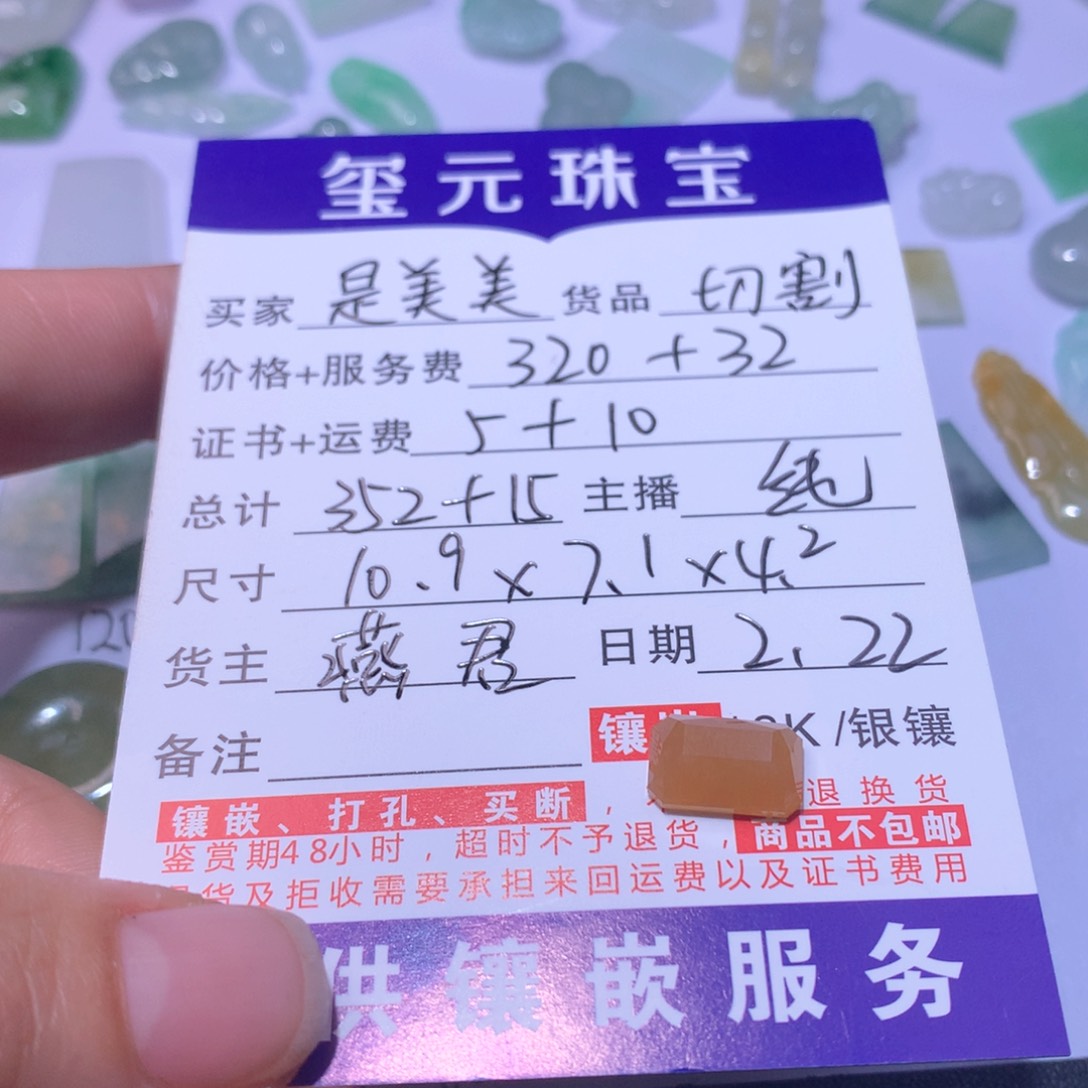 玺元珠宝
买家 是美美 货品 切割
价格+服务费 320 + 32
证书+运费 5 + 10
总计 352+15 主播 纯
尺寸 10.9 × 7.1 × 4.2
货主 燕君 日期 2.22
备注 镶 K /银镶
镶嵌、打孔、买断, 退换货
鉴赏期48小时,超时不予退货,商品不包邮
货及拒收需要承担来回运费以及证书费用
供镶嵌服务
120